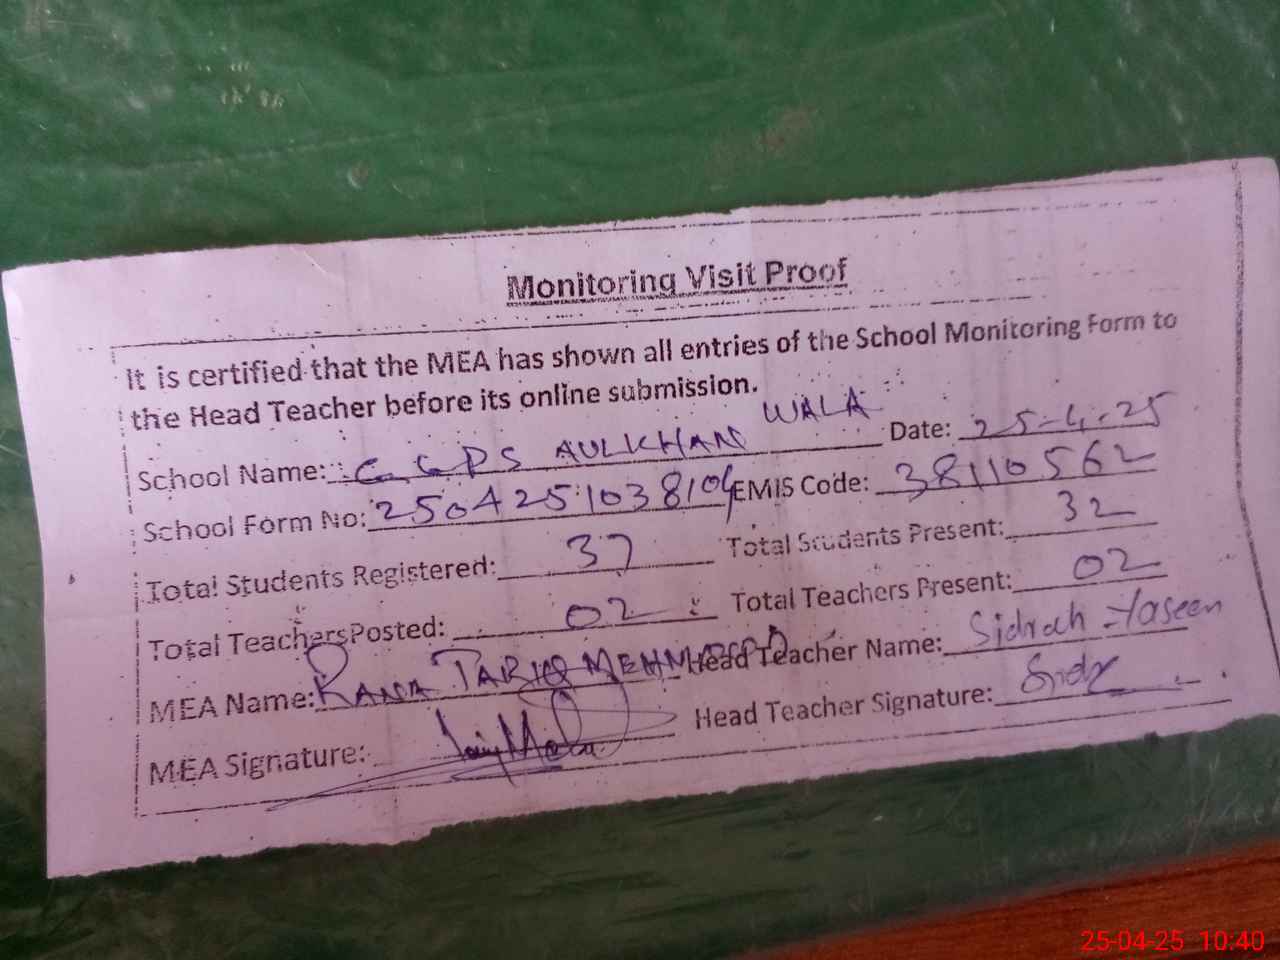 Monitoring Visit Proof
It is certified that the MEA has shown all entries of the School Monitoring Form to
the Head Teacher before its online submission.
School Name: GGPS AULKHAN WALA Date: 25-4-25
School Form No: 2504251038104 EMIS Code: 38110562
Total Students Registered: 37 Total Students Present: 32
Total Teachers Posted: 02 Total Teachers Present: 02
MEA Name: RANA TARIQ MEHMOOD Head Teacher Name: Sidrah Yaseen
MEA Signature: Head Teacher Signature:
25-04-25 10:40